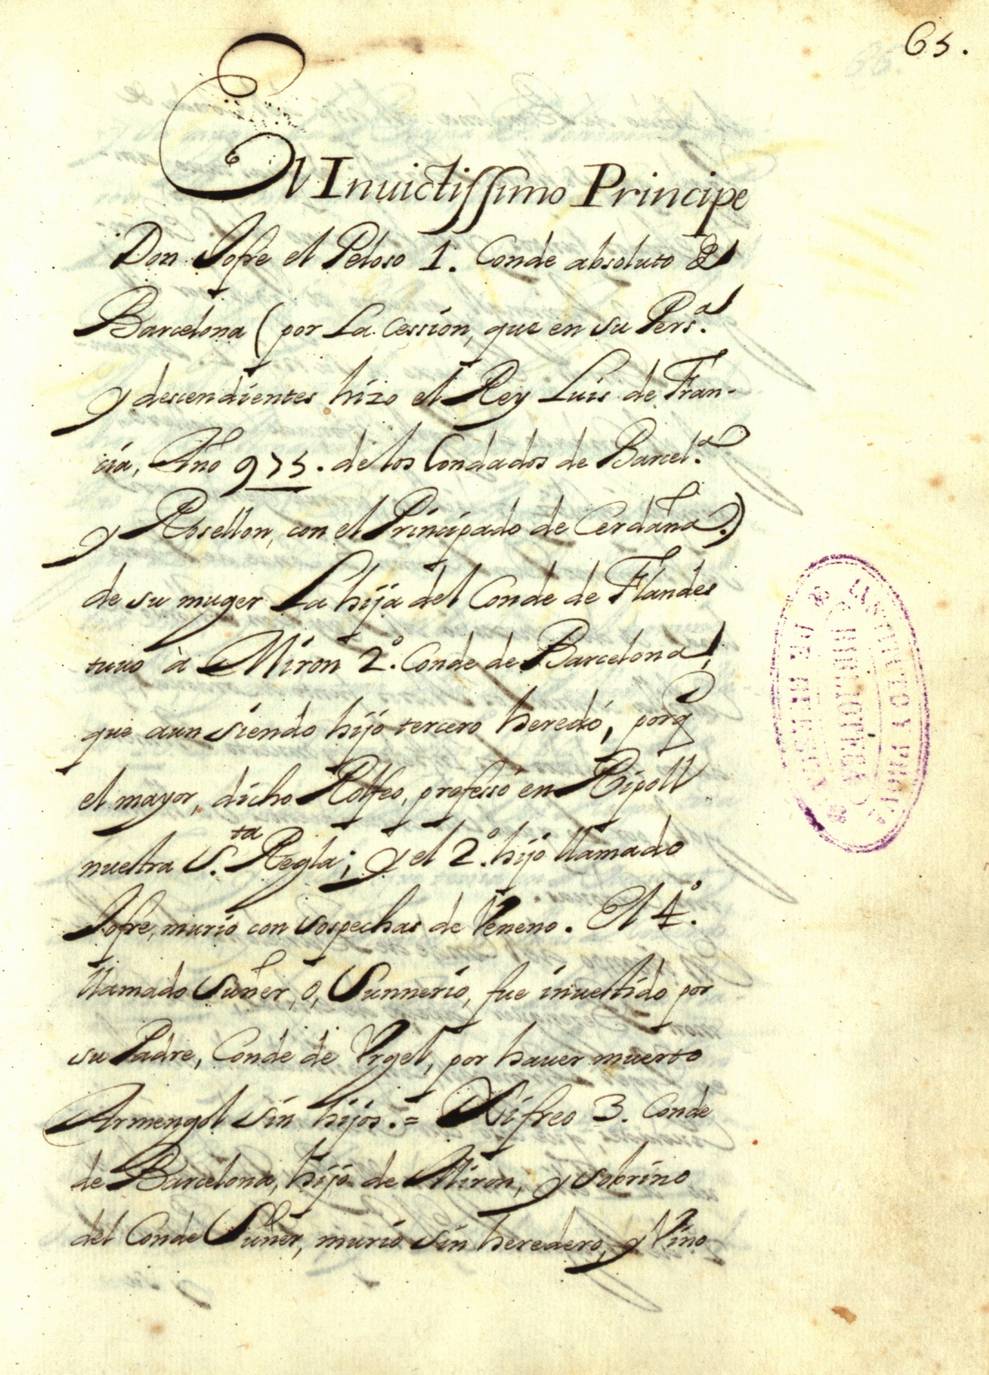 65.
El Inuictissimo Principe
Don Jofre el Peloso 1. Conde absoluto de
Barcelona (por La Cession, que en su Pers.ª
y descendientes hizo el Rey Luis de Fran-
cia, Año 975. de los Condados de Barcel.ª
y Rosellon, con el Principado de Cerdaña.)
de su muger La hija del Conde de Flandes
tuuo à Miron 2.º Conde de Barcelona,
que aun siendo hijo tercero heredó, porq̃
el mayor, dicho Rolfeo, professó en Ripoll
nuestra S.ta Regla; y el 2.º hijo llamado
Jofre, murio con sospechas de Veneno. El 4.º
llamado Suñer, o, Sunnerio, fue inuestido por
su Padre, Conde de Vrgel, por hauer muerto
Armengol sin hijos. = Xifreo 3. Conde
de Barcelona, hijo de Miron, y sobrino
del Conde Suñer, murió sin heredero, y Vino
INSTITUTO Y PROVA
BIBLIOTECA